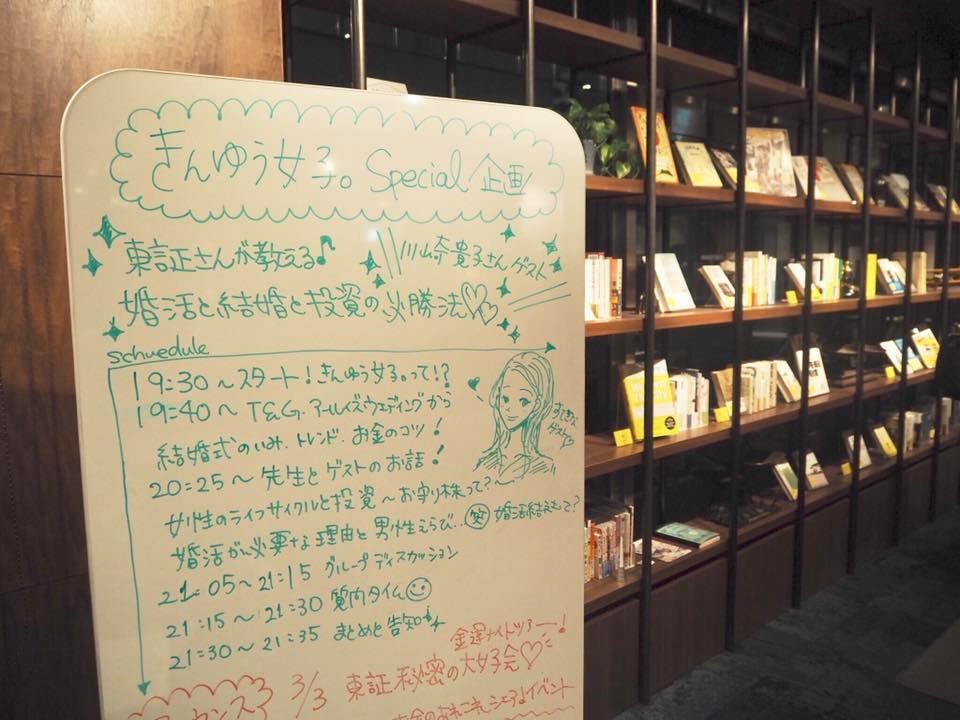 きんゆう女子。Special企画
東証さんが教える♪
川崎貴子さんゲスト
婚活と結婚と投資の必勝法♡♡
schuedule
19:30～スタート！きんゆう女子。って!?
19:40～ T&G.アールイズウェディングから
結婚式のいみ.トレンド.お金のコツ！
すてきな
ゲスト♡
20:25～先生とゲストのお話！
女性のライフサイクルと投資～お守り株って?～
婚活が必要な理由と男性えらび..笑 婚活結社って?
21:05～21:15 グループディスカッション
21:15～21:30 質問タイム☺
21:30～21:35 まとめと告知
金運ナイトツアー！
3/3 東証秘密の大女子会♡
イベント